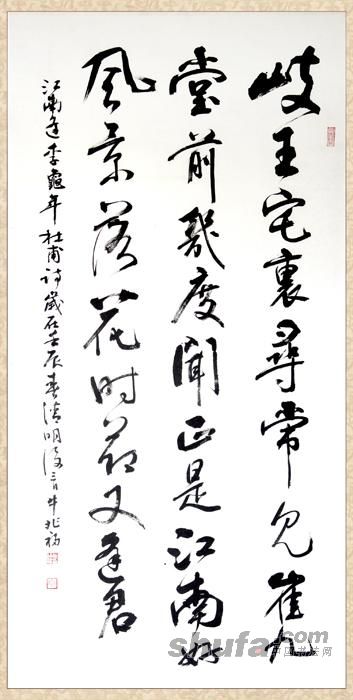 岐王宅裏尋常見崔九
堂前幾度聞正是江南好
風景落花時節又逢君
江南逢李龜年杜甫詩歲在壬辰春清明後三日牛兆福
shufa.com
中国书法网